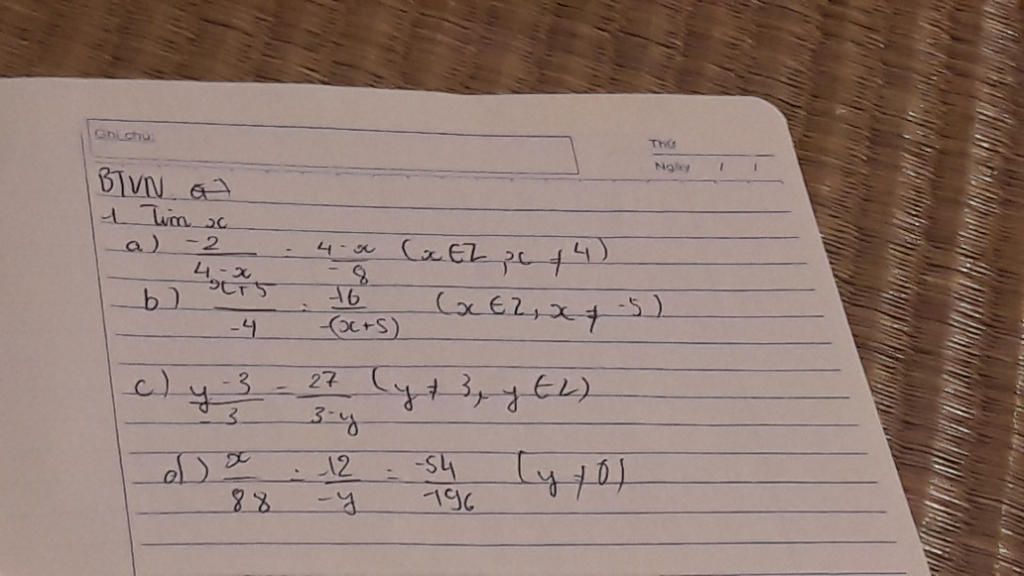 Ghi chú:
Thứ
Ngày / /
BTVN a)
1. Tìm x
a) -2/(4-x) = (4-x)/-8 (x∈Z, x ≠ 4)
b) (x+5)/-4 = -16/-(x+5) (x∈Z, x ≠ -5)
c) (y-3)/-3 = 27/(3-y) (y ≠ 3, y∈Z)
d) x/88 = -12/-y = -54/-196 (y ≠ 0)